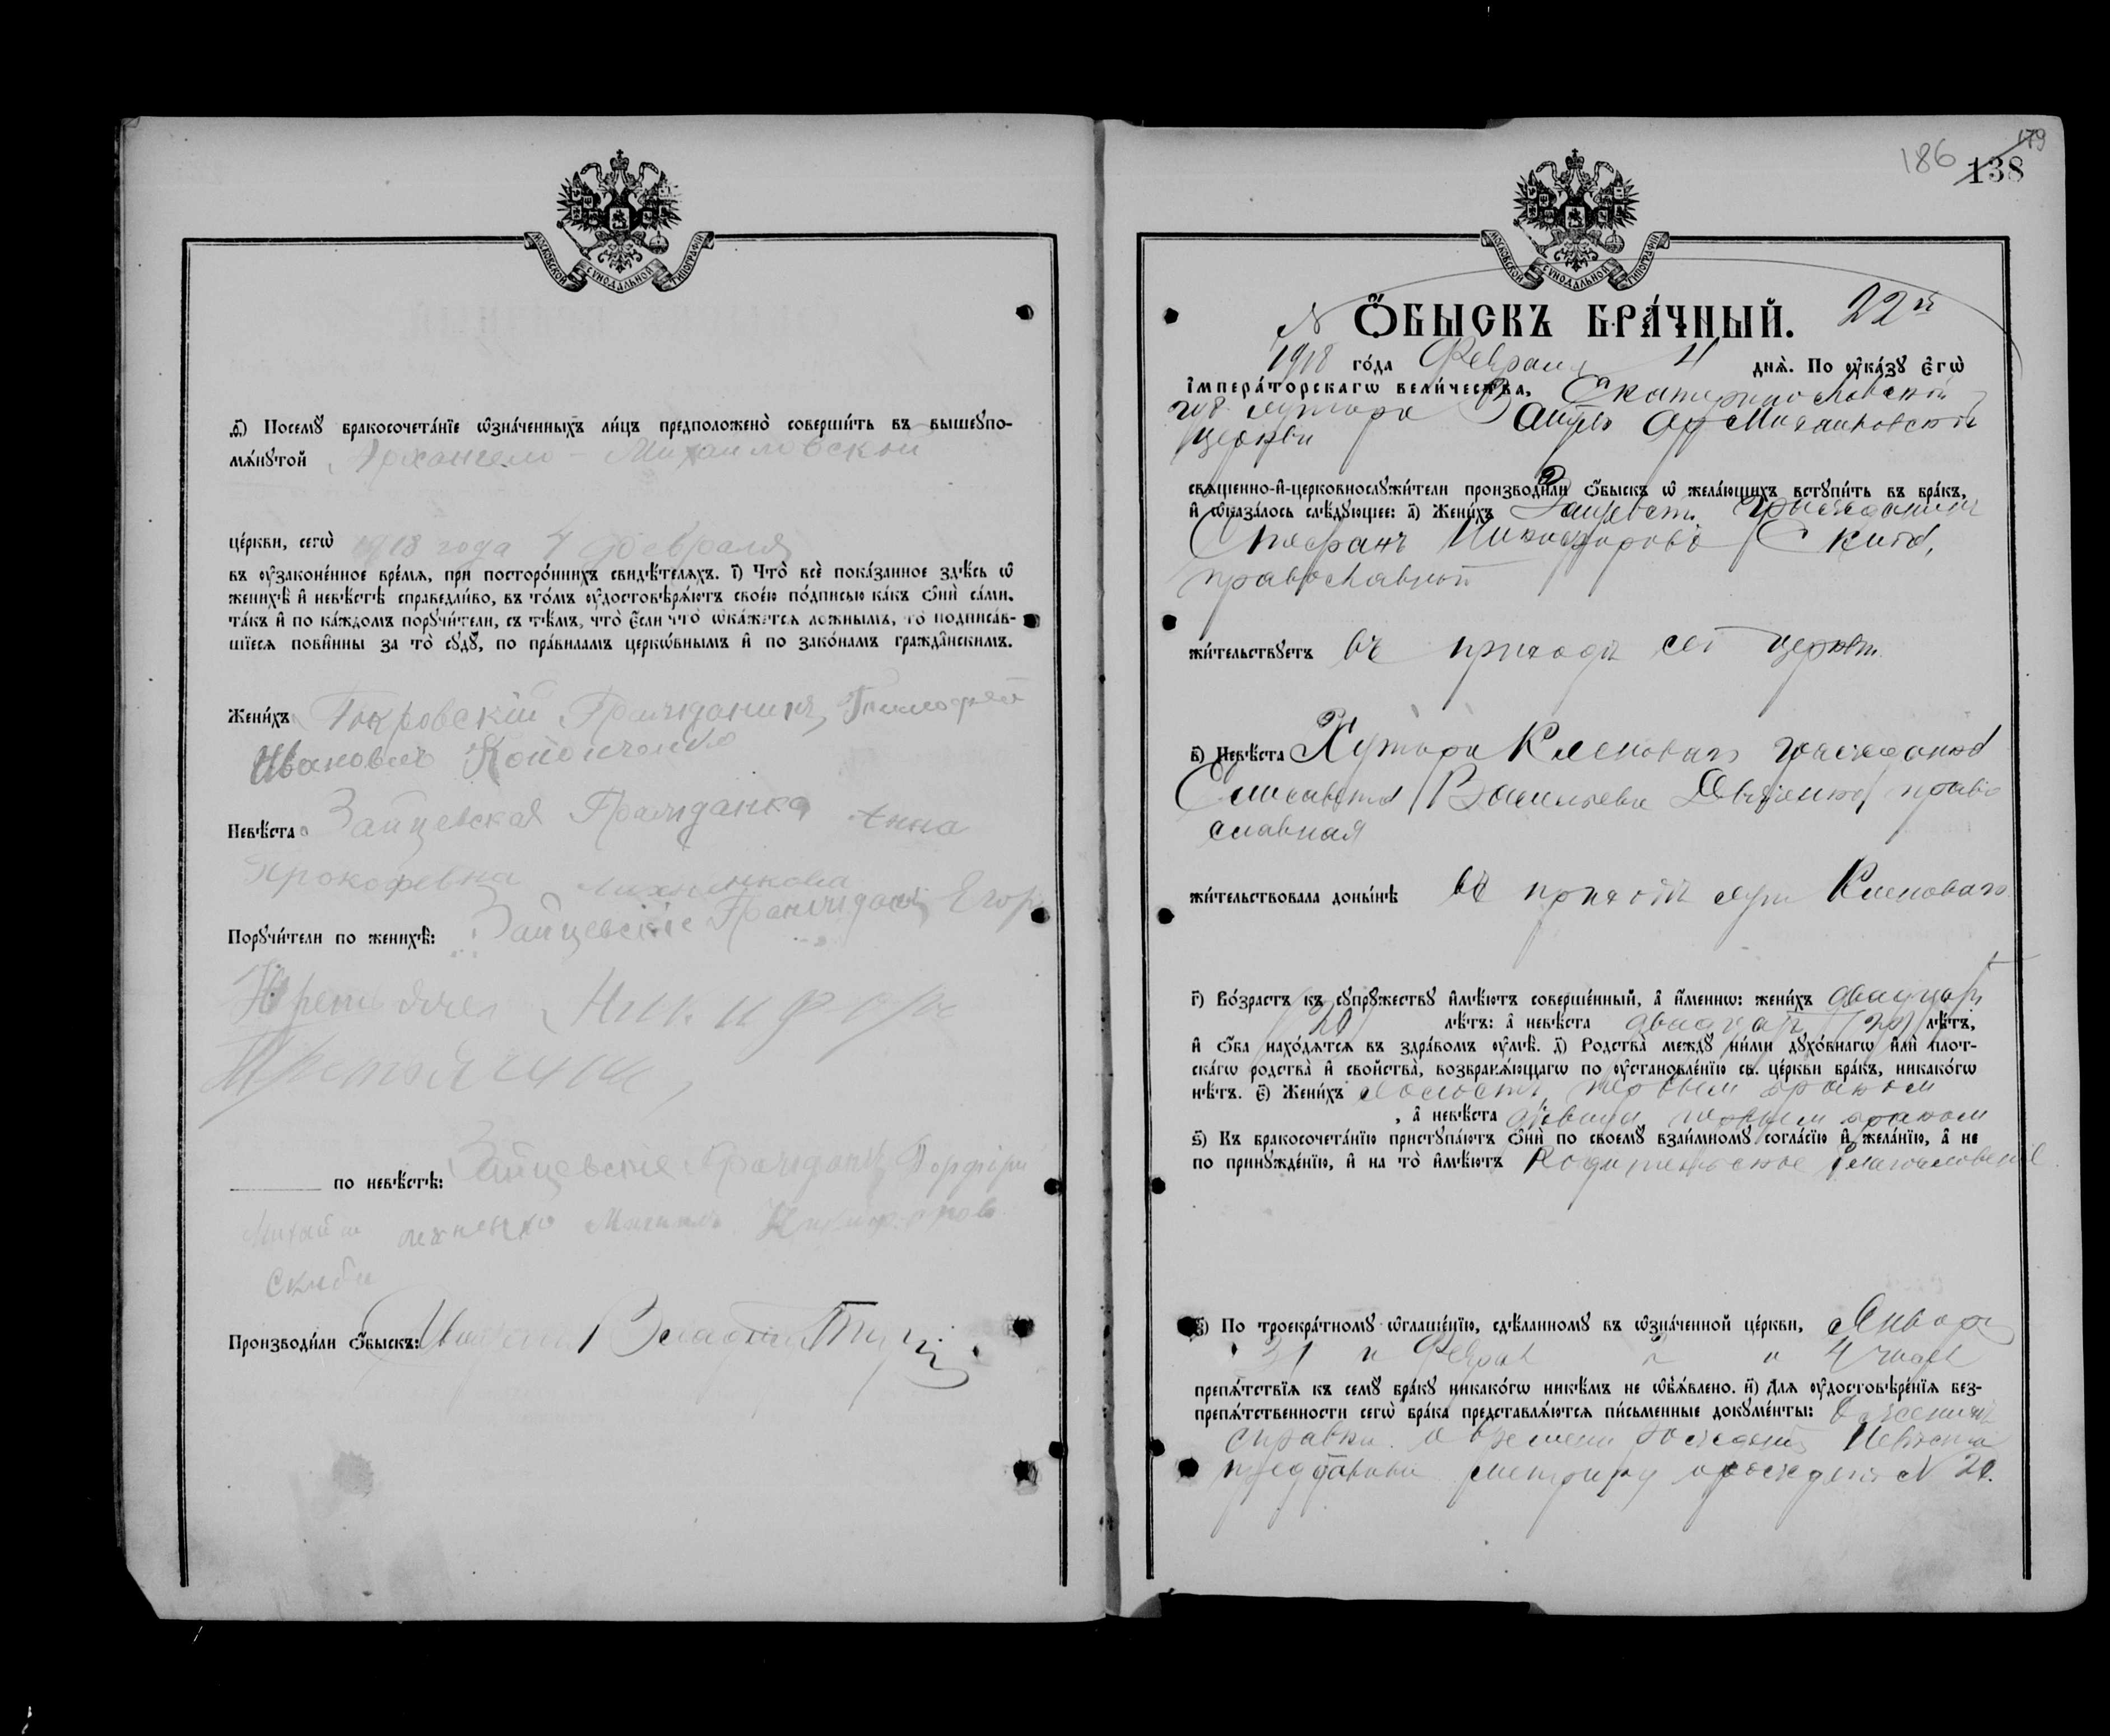 МОСКОВСКОЙ СѴНОДАЛЬНОЙ ТИПОГРАФІИ
д҃) Посемꙋ̀ бракосочета́нїе ѡ҆зна́ченныхъ ли́цъ предположено̀ соверши́ть въ вышеꙋпо-
мѧ́нꙋтой Архангело-Михаиловской
це́ркви, сегѡ̀ 1918 года 4 февраля
въ ᲂу҆зако́ненное вре́мѧ, при посторо́ннихъ свидѣ́телѧхъ. і҃) Что̀ всѐ пока́занное здѣ́сь ѡ҆
женихѣ̀ и҆ невѣ́стѣ справедли́во, въ то́мъ ᲂу҆достовѣрѧ́ютъ свое́ю по́дписью ка́къ ѻ҆нѝ са́ми,
та́къ и҆ по ка́ждомъ порꙋчи́тели, съ тѣ́мъ, что̀ є҆́сли что̀ ѡ҆ка́жетсѧ ло́жнымъ, то̀ подписа́в-
шїесѧ пови́нны за то̀ сꙋдꙋ̀, по пра́виламъ церкѡ́внымъ и҆ по зако́намъ гражда́нскимъ.
Жени́хъ Покровскій Гражданинъ, Тимофей
Ивановичъ
Невѣ́ста Зайцевская Гражданка Анна
Прокофевна
Порꙋчи́тели по женихѣ̀: Зайцевскіе Граждани, Егоръ
Никифоръ
по невѣ́стѣ: Зайцевскіе Граждани, Порфірій
Михайли Никифоровъ
Скиба
Производи́ли ѻ҆́быскъ:
186 179 138
МОСКОВСКОЙ СѴНОДАЛЬНОЙ ТИПОГРАФІИ
№ Ѻ҆́БЫСКЪ БРА́ЧНЫЙ. 22й
1918 го́да Февраля 4 днѧ̀. По ᲂу҆ка́зꙋ є҆гѡ̀
і҆мпера́торскагѡ вели́чества, Екатеринославской
губ. хутора Зайцев Ар. Михаиловской
церкви
свѧще́нно-и҆-церковнослꙋжи́тели производи́ли ѻ҆́быскъ ѡ҆ жела́ющихъ встꙋпи́ть въ бра́къ,
и҆ ѡ҆каза́лось слѣ́дꙋющее: а҃) Жени́хъ Зайцевск. гражданинъ
Стефанъ Никифоровъ Скиба,
православной
жи́тельствꙋетъ въ приходѣ сей церкви
в҃) Невѣ́ста Хутора Кленоваго гражданка
Елисавета Васильева православная
жи́тельствовала доны́нѣ въ приходѣ хут Кленоваго
г҃) Во́зрастъ къ сꙋпрꙋ́жествꙋ и҆мѣ́ютъ соверше́нный, а҆ и҆́меннѡ: жени́хъ двадцать
20 лѣ́тъ: а҆ невѣ́ста двадцать (20) лѣ́тъ,
и҆ ѻ҆́ба нахо́дѧтсѧ въ здра́вомъ ᲂу҆мѣ̀. д҃) Родства̀ междꙋ ни́ми дꙋхо́внагѡ и҆лѝ пло́т-
скагѡ родства̀ и҆ сво́йства̀, возбранѧ́ющагѡ по ᲂу҆становле́нїю св. це́ркви бра́къ, никако́гѡ
нѣ́тъ. є҃) Жени́хъ холостъ, первым браком
, а҆ невѣ́ста дѣвица первым браком
ѕ҃) Къ бракосочета́нїю пристꙋпа́ютъ ѻ҆нѝ по своемꙋ̀ взаи́мномꙋ согла́сїю и҆ жела́нїю, а҆ не
по принꙋжде́нїю, и҆ на то̀ и҆мѣ́ютъ Родительское благословеніе
з҃) По троекра́тномꙋ ѡ҆глаше́нїю, сдѣ́ланномꙋ въ ѡ҆зна́ченной це́ркви, Января
31 и Феврал 2 и 4 числа
препѧ́тствїѧ къ семꙋ̀ бра́кꙋ никако́гѡ никѣ́мъ не ѡ҆б̾ѧ́влено. и҃) Длѧ ᲂу҆достовѣре́нїѧ без-
препѧ́тственности сегѡ̀ бра́ка представлѧ́ютсѧ пи́сьменные докꙋме́нты: о женихѣ
справки о времени рожденія Невѣста
представила метрику о рожденіи № 20.